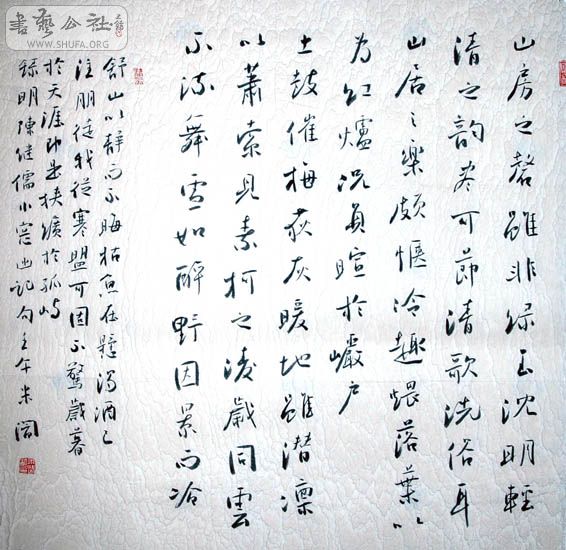 書藝公社
WWW.SHUFA.ORG
山房之磬雖非綠玉沈明輕
清之韵尽可節清歌洗俗耳
山居之樂頗惬冷趣煨落葉以
為紅爐况負暄於巖户
土鼓催梅荻灰暖地雖潛凛
以蕭索見素柯之凌歲同雲
不流舞雪如醉野因景而冷
舒山以静而不晦枯魚在懸濁酒已
注朋徒我從寒盟可固不驚歲暮
於天涯即是挾纊於孤嶼
錄明陳继儒小窗幽記句壬午